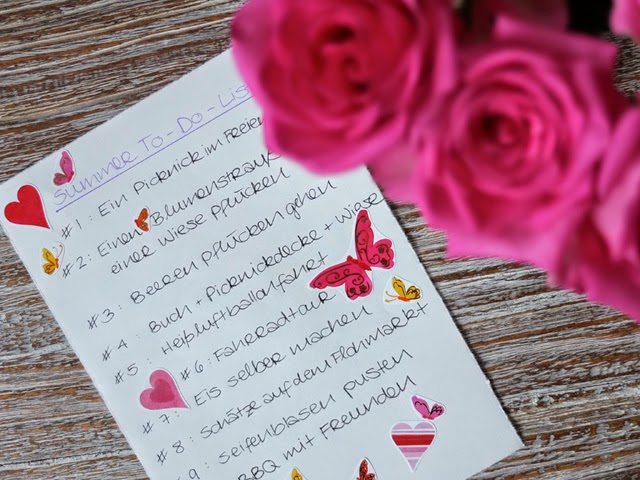 Summer To-Do-Lis
#1: Ein Picknick im Freien
#2: Einen Blumenstrauß
einer Wiese pflücken
#3: Beeren pflücken gehen
#4: Buch + Picknickdecke + Wiese
#5: Heißluftballonfahrt
#6: Fahrradtour
#7: Eis selber machen
#8: Schätze auf dem Flohmarkt
9: Seifenblasen pusten
BBQ mit Freunden